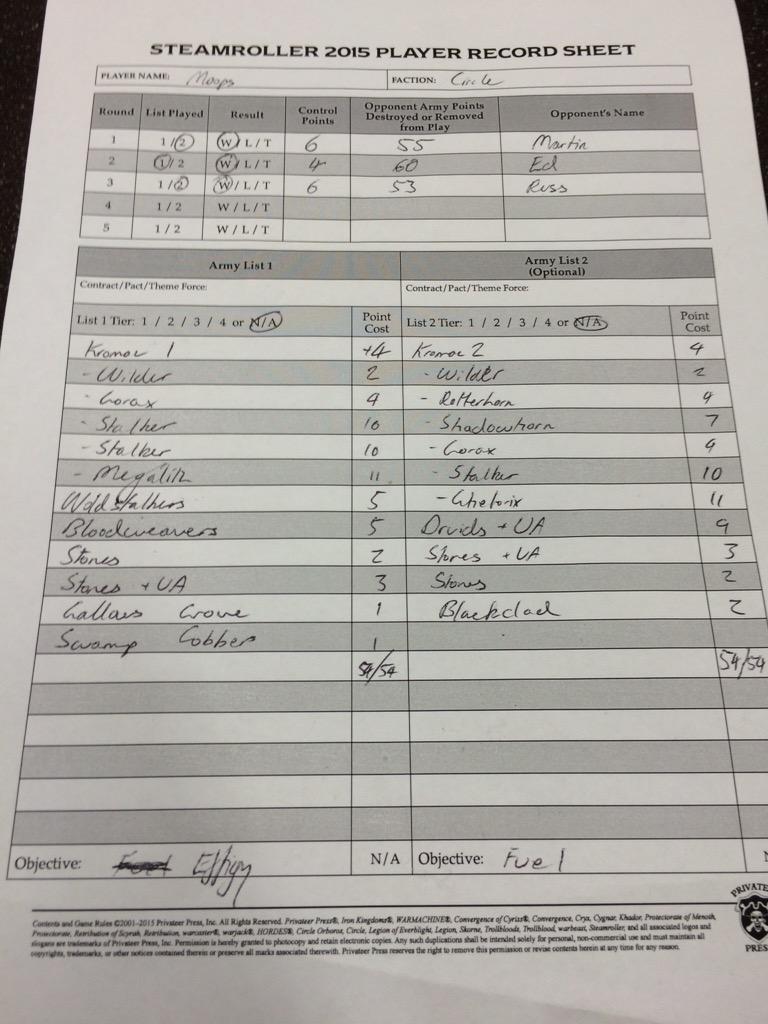 STEAMROLLER 2015 PLAYER RECORD SHEET
PLAYER NAME: Moops FACTION: Circle
Round List Played Result Control Points Opponent Army Points Destroyed or Removed from Play Opponent's Name
1 1/2 W/L/T 6 55 Martin
2 1/2 W/L/T 4 60 Ed
3 1/2 W/L/T 6 53 Russ
4 1/2 W/L/T
5 1/2 W/L/T
Army List 1 Army List 2 (Optional)
Contract/Pact/Theme Force: Contract/Pact/Theme Force:
List 1 Tier: 1 / 2 / 3 / 4 or N/A Point Cost List 2 Tier: 1 / 2 / 3 / 4 or N/A Point Cost
Kromac 1 +4 Kromac 2 4
- Wilder 2 - Wilder 2
- Gorax 4 - Rotterhorn 4
- Stalker 10 - Shadowhorn 7
- Stalker 10 - Gorax 4
- Megalith 11 - Stalker 10
Wold Stalkers 5 - Ghetorix 11
Bloodweavers 5 Druids + UA 9
Stones 2 Stones + UA 3
Stones + UA 3 Stones 2
Gallows Grove 1 Blackclad 2
Swamp Gobber 1
54/54 54/54
Objective: Fuel Effigy N/A Objective: Fuel
PRIVATE
Contents and Game Rules ©2001–2015 Privateer Press, Inc. All Rights Reserved. Privateer Press®, Iron Kingdoms®, WARMACHINE®, Convergence of Cyriss®, Convergence, Cryx, Cygnar, Khador, Protectorate of Menoth,
Protectorate, Retribution of Scyrah, Retribution, warcaster®, warjack®, HORDES®, Circle Orboros, Circle, Legion of Everblight, Legion, Skorne, Trollbloods, Trollblood, warbeast, Steamroller, and all associated logos and
slogans are trademarks of Privateer Press, Inc. Permission is hereby granted to photocopy and retain electronic copies. Any such duplications shall be intended solely for personal, non-commercial use and must maintain all
copyrights, trademarks, or other notices contained therein or preserve all marks associated therewith. Privateer Press reserves the right to remove this permission or revise contents herein at any time for any reason.
PRES